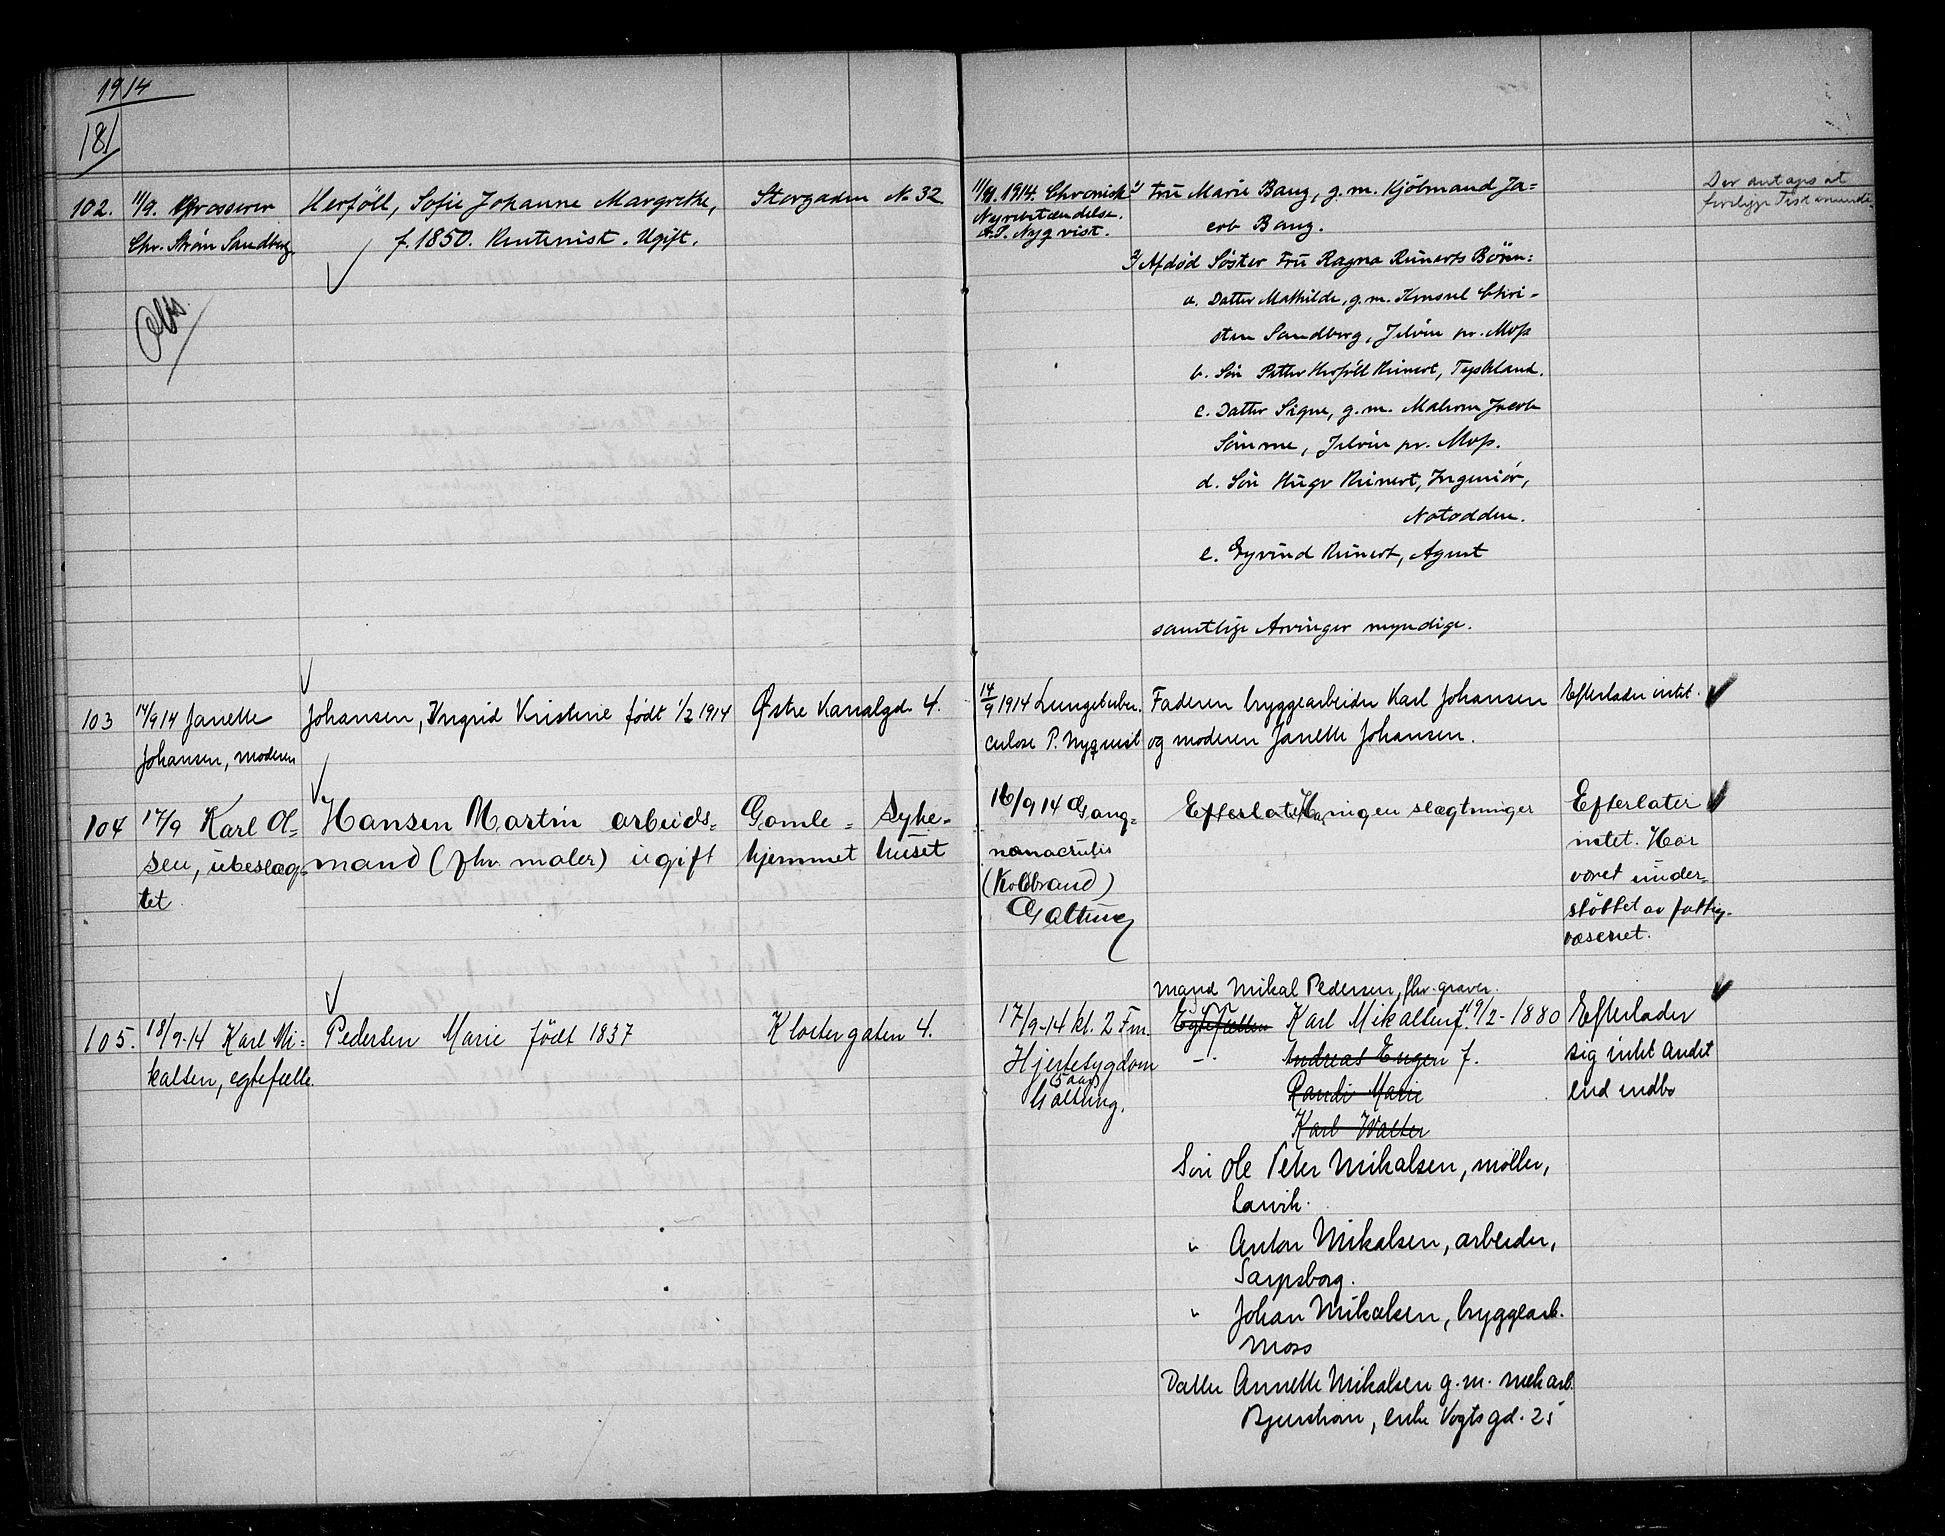 1914
181
102. 11/9. Grosserer
Chr. Strøm Sandberg
Herföll, Sofie Johanne Margrethe,
f. 1850. Rentenist. Ugift.
Storgaden No 32
11/9. 1914. Chronisk
Nyrebetændelse.
P. Nyqvist.
1/ Fru Marie Bang, g. m. Kjöbmand Ja=
cob Bang.
2/ Afdød Søster Fru Ragna Reinerts Börn:
a. Datter Mathilde, g. m. Konsul Chri-
sten Sandberg, Jelöen pr. Moss
b. Sön Petter Herföll Reinert, Tyskland.
c. Datter Signe, g. m. Jacob
Sömme, Jelöen pr. Moss.
d. Sön Hugo Reinert, Ingeniör,
Notodden.
e. Eyvind Reinert, Agent
samtlige Arvinger myndige.
Der antages at
foreligge Testamente.
103 17/9 14 Janette
Johansen, moderen
Johansen, Ingrid Kristine født 1/2 1914
Østre Kanalgd. 4.
14/9 1914 Lungetuber.
culose P. Nyquist
Faderen bryggearbeider Karl Johansen
og moderen Janette Johansen.
Efterlader intet.
104 17/9 Karl Ol=
sen, ubeslæg=
tet.
Hansen Martin arbeids=
mand (fhv. maler) ugift
Gamle=
hjemmet
Syke-
huset
16/9 14 Gang=
(Koldbrand)
Galtung
Efterlater Har ingen slægtninger
Efterlater
intet. Har
været under=
støttet av fattig-
væsenet.
105. 18/9-14 Karl Mi=
kalsen, egtefælle.
Pedersen Marie født 1837
Klostergaten 4.
17/9-14 kl. 2 Fm.
Hjertesygdom
5 aar
Galtung.
mand Mikal Pedersen, fhv. graver.
Egtefællen Karl Mikalsen f. 19/2-1880
-"- Andreas Eugen f.
Randi Marie
Karl Walter
Sön Ole Peter Mikalsen, møller,
Larvik.
" Anton Mikalsen, arbeider,
Sarpsborg.
" Johan Mikalsen, bryggearb.
Moss
Datter Annette Mikalsen g. m. mek arb.
Bjurstrøm, enke Vogtsgd. 25
Efterlader
sig intet andet
end indbo